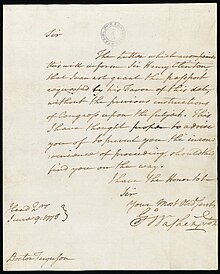 Sir
The Letter which accompanies
this will inform Sir Henry Clinton
that I can not grant the passport
requested by his Favor of this date,
without the previous instructions
of Congress upon the subject. This
I have thought proper to advise
you of to prevent you the incon-
venience of proceeding, should this
find you on the way.
I have the Honor to be
Sir
Your Most Obed Servt
Go Washington
Head Qrs
June 9. 1778
Doctor Ferguson